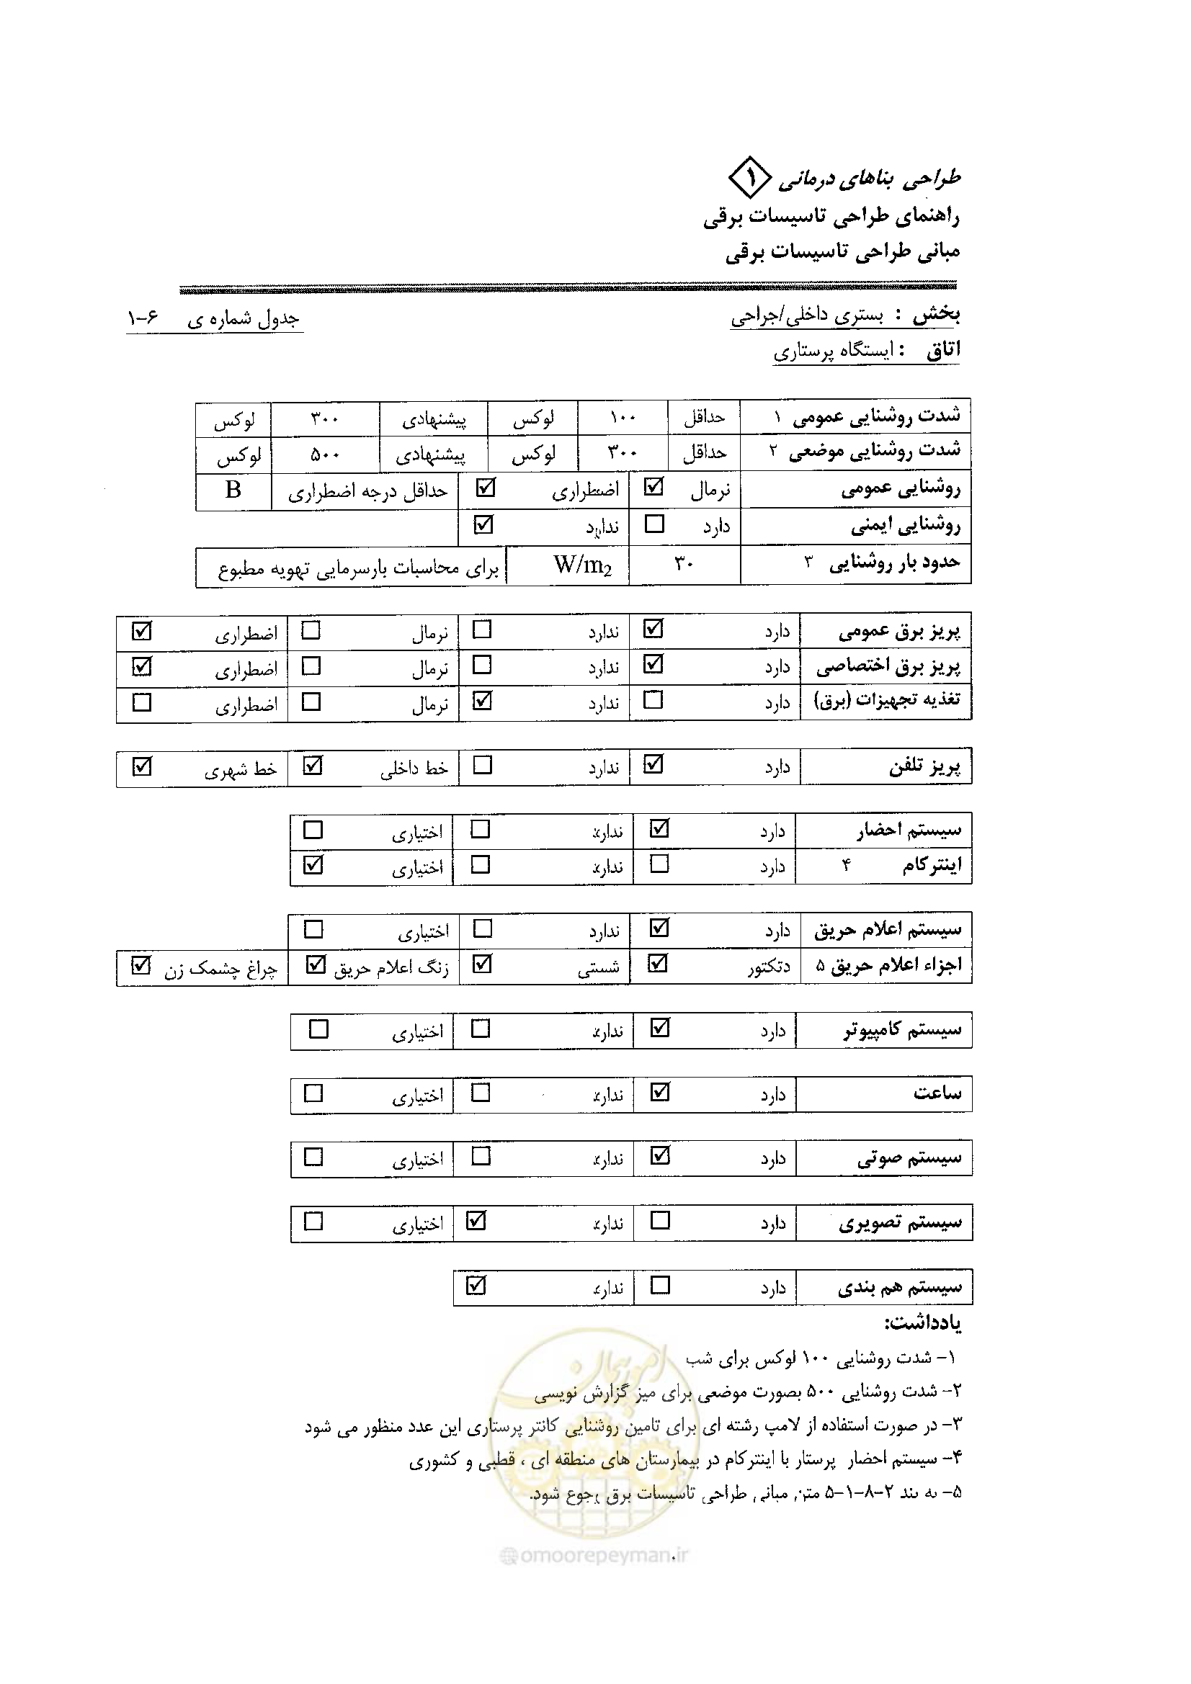 طراحی بناهای درمانی ۱
راهنمای طراحی تاسیسات برقی
مبانی طراحی تاسیسات برقی
بخش : بستری داخلی/جراحی جدول شماره ی ۶-۱
اتاق : ایستگاه پرستاری
شدت روشنایی عمومی ۱ حداقل ۱۰۰ لوکس پیشنهادی ۳۰۰ لوکس
شدت روشنایی موضعی ۲ حداقل ۳۰۰ لوکس پیشنهادی ۵۰۰ لوکس
روشنایی عمومی نرمال ☑ اضطراری ☑ حداقل درجه اضطراری B
روشنایی ایمنی دارد ☐ ندارد ☑
حدود بار روشنایی ۳ ۳۰ W/m2 برای محاسبات بارسرمایی تهویه مطبوع
پریز برق عمومی دارد ☑ ندارد ☐ نرمال ☐ اضطراری ☑
پریز برق اختصاصی دارد ☑ ندارد ☐ نرمال ☐ اضطراری ☑
تغذیه تجهیزات (برق) دارد ☐ ندارد ☑ نرمال ☐ اضطراری ☐
پریز تلفن دارد ☑ ندارد ☐ خط داخلی ☑ خط شهری ☑
سیستم احضار دارد ☑ ندارد ☐ اختیاری ☐
اینترکام ۴ دارد ☐ ندارد ☐ اختیاری ☑
سیستم اعلام حریق دارد ☑ ندارد ☐ اختیاری ☐
اجزاء اعلام حریق ۵ دتکتور ☑ شستی ☑ زنگ اعلام حریق ☑ چراغ چشمک زن ☑
سیستم کامپیوتر دارد ☑ ندارد ☐ اختیاری ☐
ساعت دارد ☑ ندارد ☐ اختیاری ☐
سیستم صوتی دارد ☑ ندارد ☐ اختیاری ☐
سیستم تصویری دارد ☐ ندارد ☑ اختیاری ☐
سیستم هم بندی دارد ☐ ندارد ☑
یادداشت:
۱- شدت روشنایی ۱۰۰ لوکس برای شب
۲- شدت روشنایی ۵۰۰ بصورت موضعی برای میز گزارش نویسی
۳- در صورت استفاده از لامپ رشته ای برای تامین روشنایی کانتر پرستاری این عدد منظور می شود
۴- سیستم احضار پرستار با اینترکام در بیمارستان های منطقه ای ، قطبی و کشوری
۵- به بند ۲-۸-۱-۵ متن مبانی طراحی تاسیسات برق رجوع شود.
امور پیمان
@omoorepeyman.ir